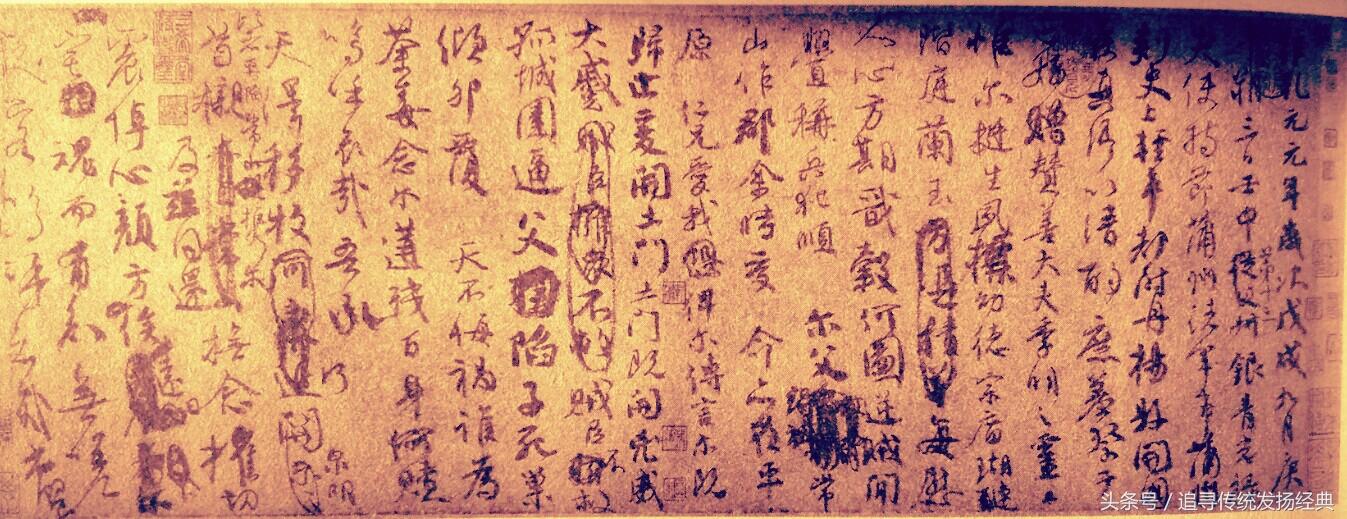 維乾元元年歲次戊戌九月庚
午朔三日壬申第十三叔銀青光祿
夫使持節蒲州諸軍事蒲州
刺史上輕車都尉丹楊縣開國
侯真卿以清酌庶羞祭于
亡姪贈贊善大夫季明之靈曰
惟爾挺生夙標幼德宗廟瑚璉
階庭蘭玉方憑積善每慰
人心方期戩穀何圖逆賊閒
釁稱兵犯順爾父竭誠常
山作郡余時受命亦在平
原仁兄愛我俾爾傳言爾既
歸止爰開土門土門既開凶威
大蹙賊臣擁眾不救賊臣不救
孤城圍逼父陷子死巢
傾卵覆天不悔禍誰為
荼毒念爾遘殘百身何贖
嗚呼哀哉吾承
天澤移牧河關泉明
比者再陷常山攜爾
首櫬及茲同還撫念摧切
震悼心顏方俟遠日
卜爾幽宅魂而有知無嗟
久客嗚呼哀哉尚饗
头条号 / 追寻传统发扬经典